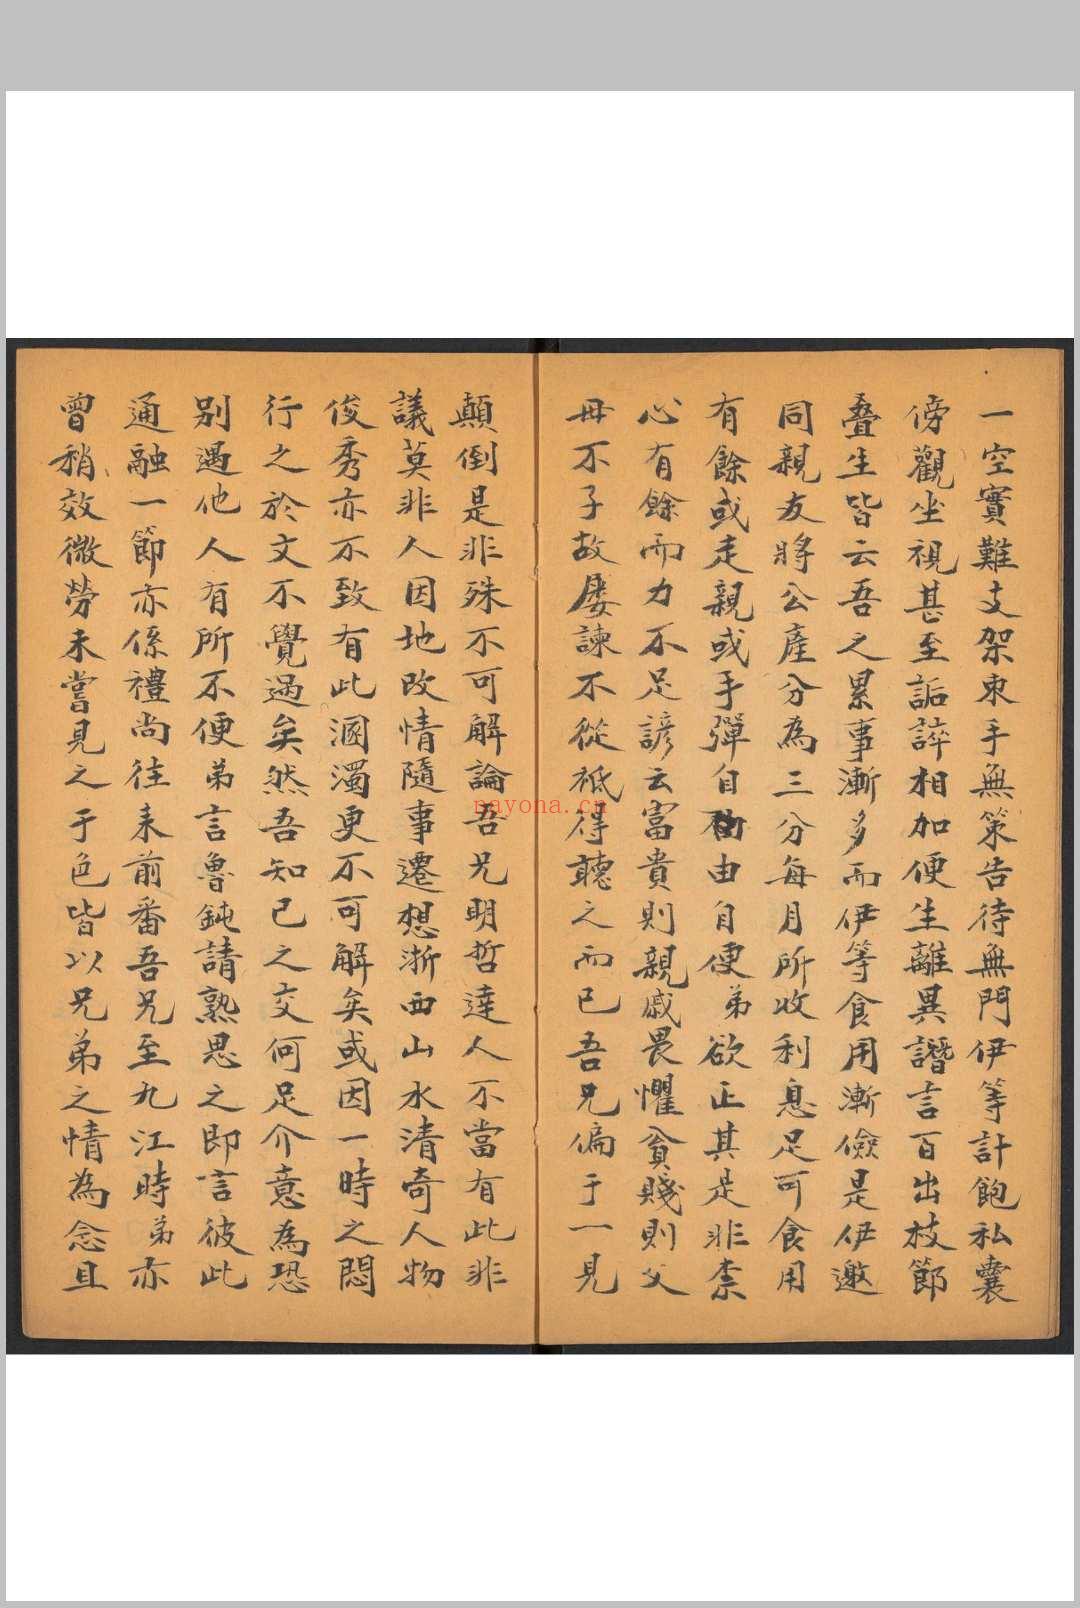 一空實難支架束手無策告待無門伊等計飽私囊
傍觀坐視甚至詬誶相加便生離異譖言百出枝節
叠生皆云吾之累事漸多而伊等食用漸儉是伊邀
同親友將公産分為三分每月所收利息足可食用
有餘或走親或手彈自由自便弟欲正其是非柰
心有餘而力不足諺云富貴則親戚畏懼貧賤則父
毋不子故屡諫不從袛得聽之而已吾兄偏于一見
顛倒是非殊不可解論吾兄明哲達人不當有此非
議莫非人因地改情隨事遷想浙西山水清奇人物
俊秀亦不致有此溷濁更不可解矣或因一時之悶
行之於文不覺過矣然吾知己之交何足介意為恐
别遇他人有所不便弟言魯鈍請熟思之即言彼此
通融一節亦係禮尚往来前番吾兄至九江時弟亦
曾稍效微勞未嘗見之于色皆以兄弟之情為念且
nayona.cn